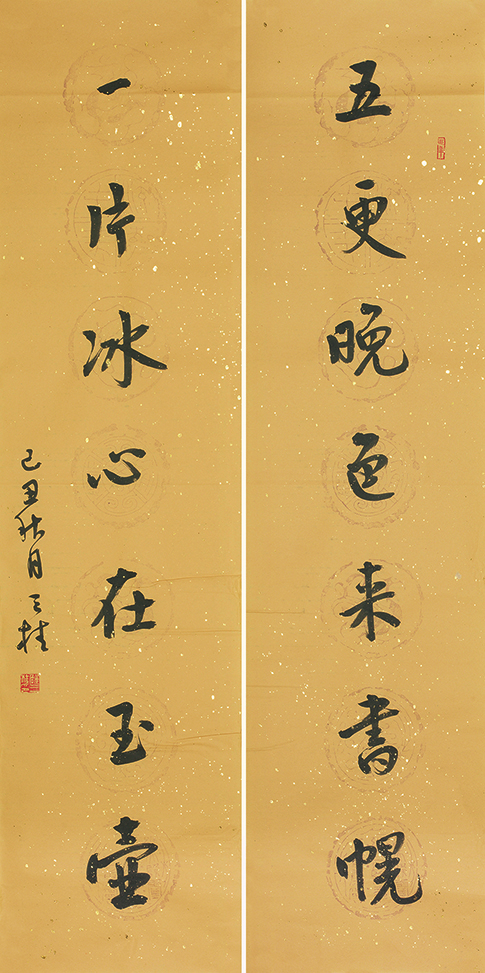 五更晚色来書幌
一片冰心在玉壺
己丑秋月